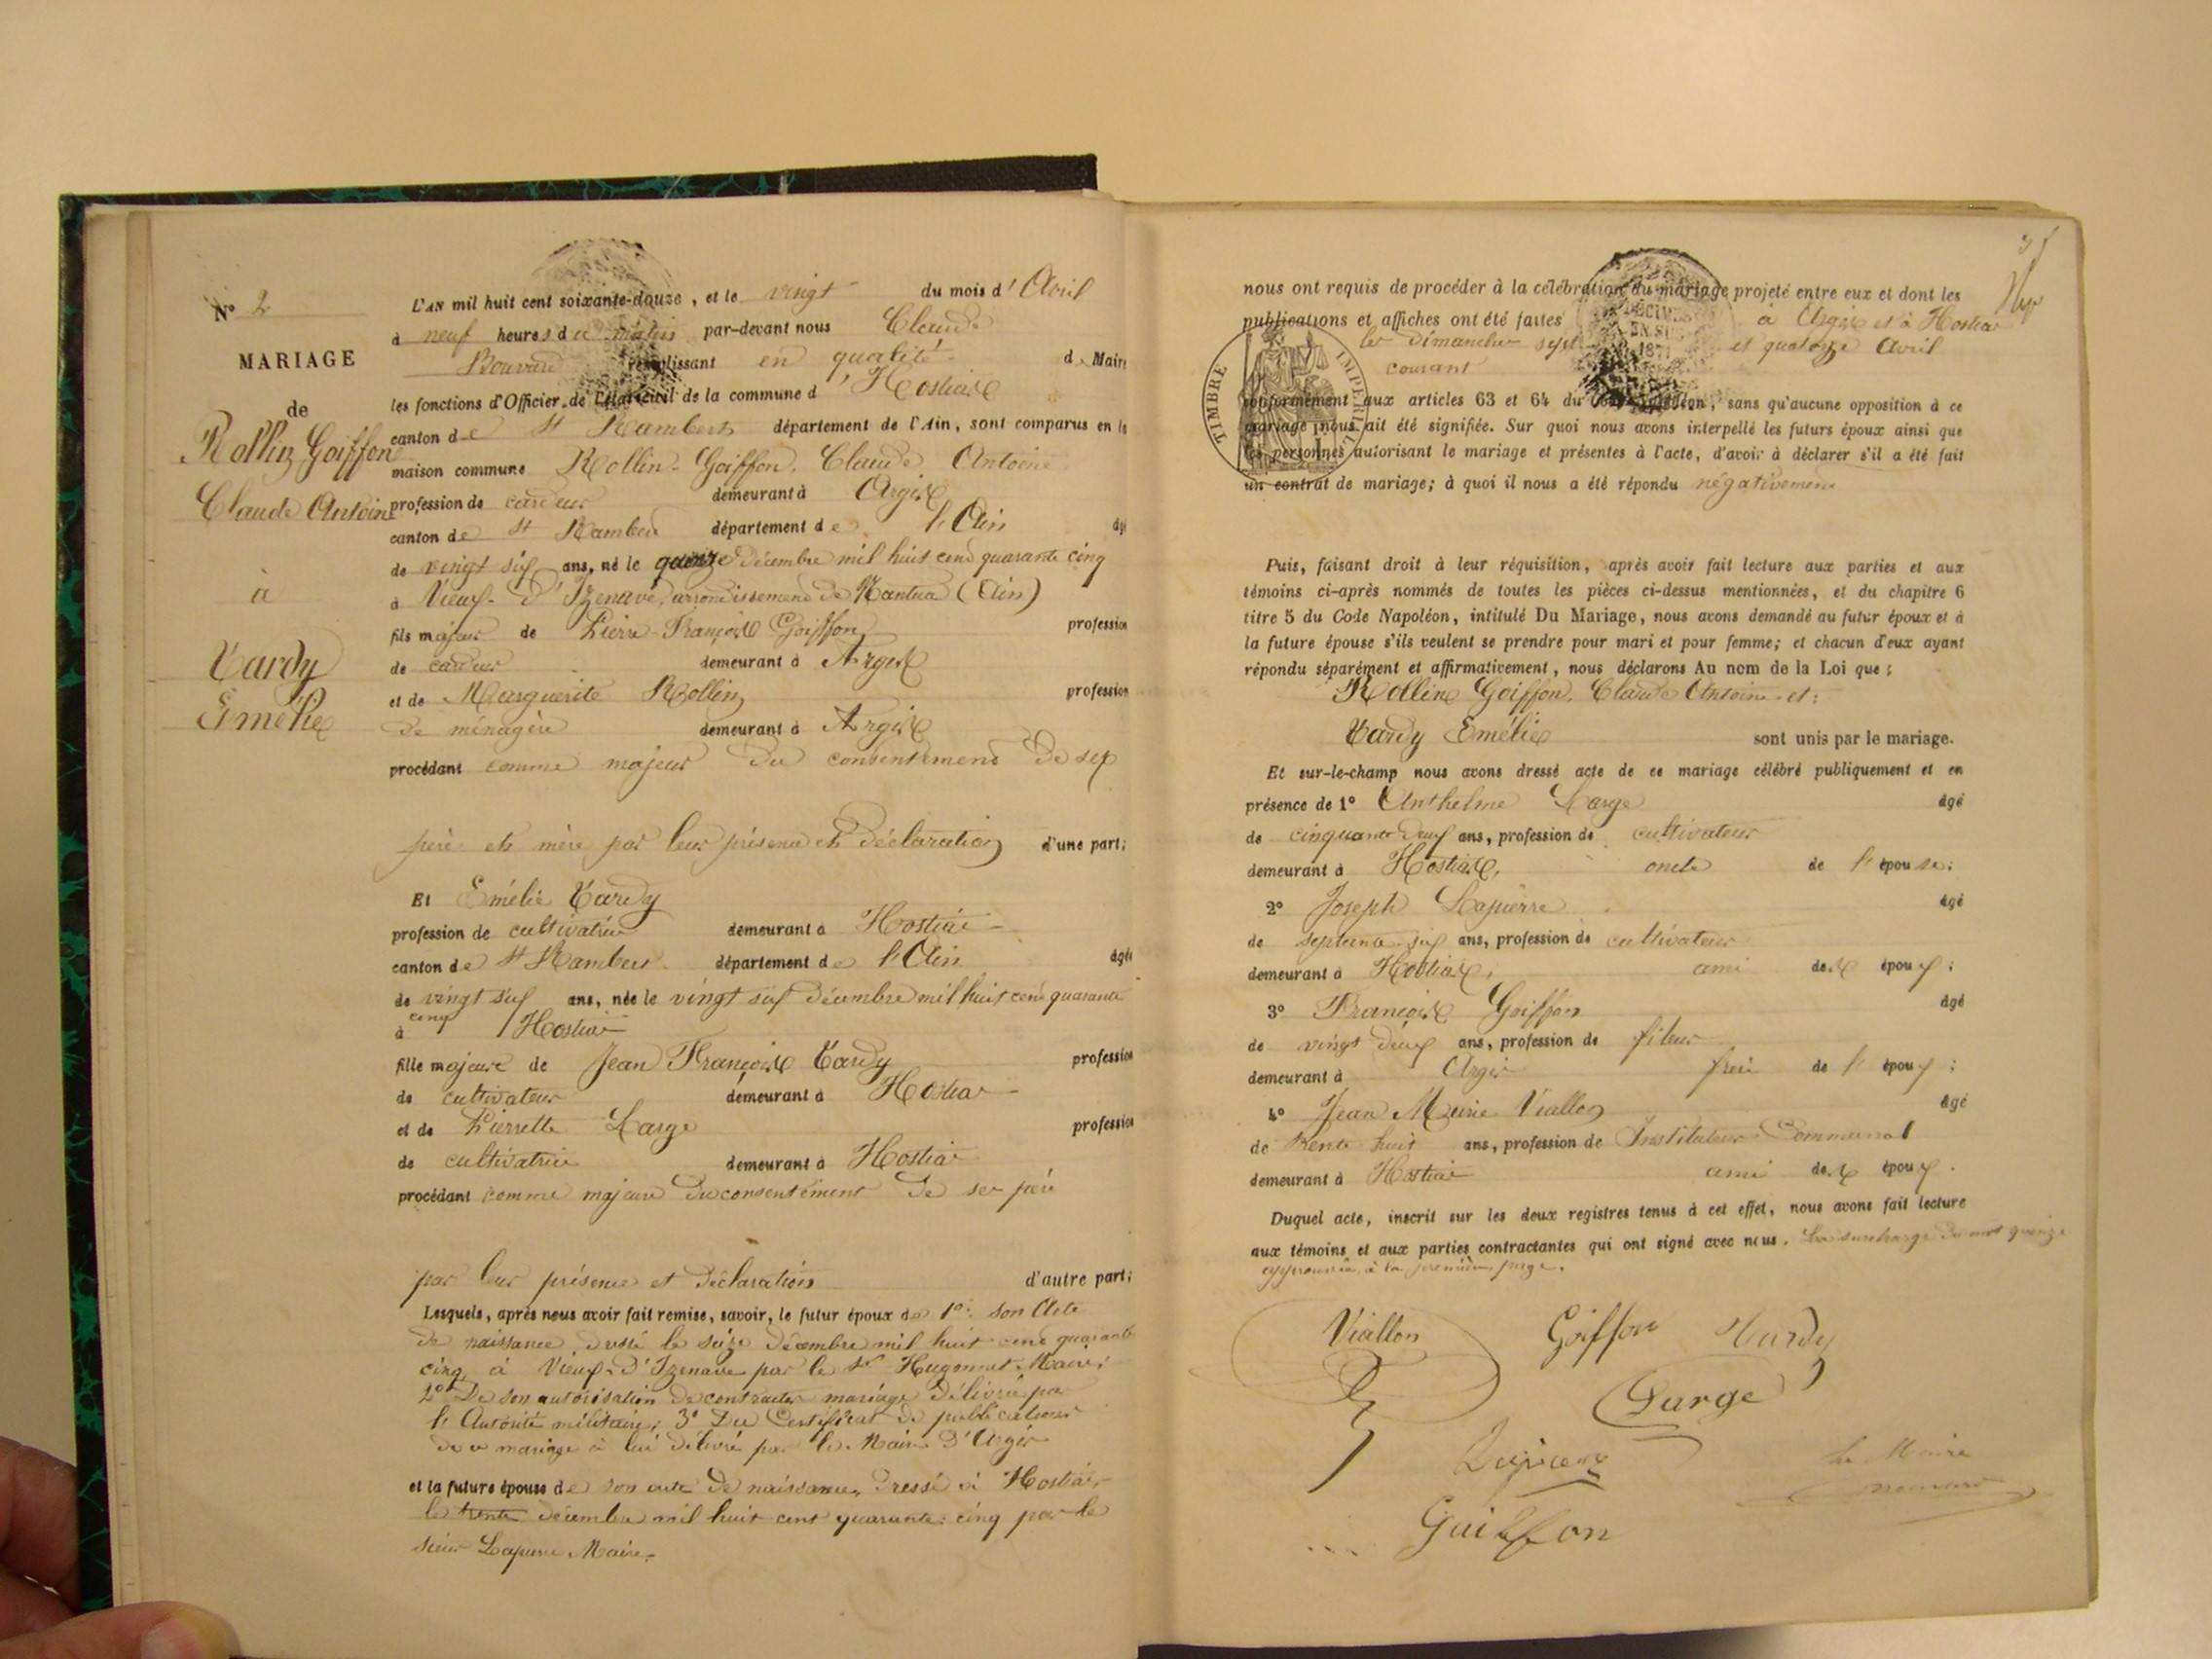 N° 2
MARIAGE
de
Rollin Goiffon
Claude Antoine
à
Tardy
Emélie
L'AN mil huit cent soixante-douze, et le vingt du mois d'Avril
à neuf heures du matin par-devant nous Claude
Bouvard remplissant en qualité de Maire
les fonctions d'Officier de l'état civil de la commune d'Hostiax
canton de St Rambert département de l'Ain, sont comparus en la
maison commune Rollin-Goiffon, Claude Antoine
profession de cardeur demeurant à Argix
canton de St Rambert département de l'Ain âgé
de vingt six ans, né le quinze Décembre mil huit cent quarante cinq
à Vieux-d'Izenave, arrondissement de Nantua (Ain)
fils majeur de Pierre-François Goiffon profession
de cardeur demeurant à Argix
et de Marguerite Rollin profession
de ménagère demeurant à Argix
procédant comme majeur du consentement de ses
père et mère par leur présence et déclaration d'une part;
Et Emélie Tardy
profession de cultivatrice demeurant à Hostiaz
canton de St Rambert département de l'Ain âgée
de vingt six ans, née le vingt six décembre mil huit cent quarante
cinq
à Hostiaz
fille majeure de Jean François Tardy profession
de cultivateur demeurant à Hostiaz
et de Pierrette Large profession
de cultivatrice demeurant à Hostiaz
procédant comme majeure du consentement de ses père
par leur présence et déclaration d'autre part;
Lesquels, après nous avoir fait remise, savoir, le futur époux de 1° son Acte
de naissance dressé le seize Décembre mil huit cent quarante
cinq à Vieux-d'Izenave par le Sr Hugonnet Maire;
2° De son autorisation de contracter mariage délivrée par
l'Autorité militaire; 3° Du Certificat de publications
de ce mariage à lui délivré par le Maire d'Argis
et la future épouse de son acte de naissance, dressé à Hostiaz
le trente décembre mil huit cent quarante-cinq par le
sieur Lapierre Maire.
nous ont requis de procéder à la célébration du mariage projeté entre eux et dont les
publications et affiches ont été faites à Argix et à Hostiaz
les dimanches sept et quatorze Avril
courant
TIMBRE IMPERIAL
conformément aux articles 63 et 64 du Code Napoléon, sans qu'aucune opposition à ce
mariage nous ait été signifiée. Sur quoi nous avons interpellé les futurs époux ainsi que
les personnes autorisant le mariage et présentes à l'acte, d'avoir à déclarer s'il a été fait
un contrat de mariage; à quoi il nous a été répondu négativement
Puis, faisant droit à leur réquisition, après avoir fait lecture aux parties et aux
témoins ci-après nommés de toutes les pièces ci-dessus mentionnées, et du chapitre 6
titre 5 du Code Napoléon, intitulé Du Mariage, nous avons demandé au futur époux et à
la future épouse s'ils veulent se prendre pour mari et pour femme; et chacun d'eux ayant
répondu séparément et affirmativement, nous déclarons Au nom de la Loi que:
Rollin Goiffon, Claude Antoine et:
Tardy Emélie sont unis par le mariage.
Et sur-le-champ nous avons dressé acte de ce mariage célébré publiquement et en
présence de 1° Anthelme Large âgé
de cinquante deux ans, profession de cultivateur
demeurant à Hostiax, oncle de l'épouse;
2° Joseph Lapierre âgé
de septante-six ans, profession de cultivateur
demeurant à Hostiax, ami des époux;
3° François Goiffon âgé
de vingt deux ans, profession de fileur
demeurant à Argis frère de l'époux;
4° Jean Marie Viallon âgé
de trente huit ans, profession de Instituteur Communal
demeurant à Hostiaz ami des époux.
Duquel acte, inscrit sur les deux registres tenus à cet effet, nous avons fait lecture
aux témoins et aux parties contractantes qui ont signé avec nous. La surcharge du mot quinze
approuvée à la première page.
Viallon Goiffon Tardy
Large
Lapierre Le Maire
Bouvard
Goiffon